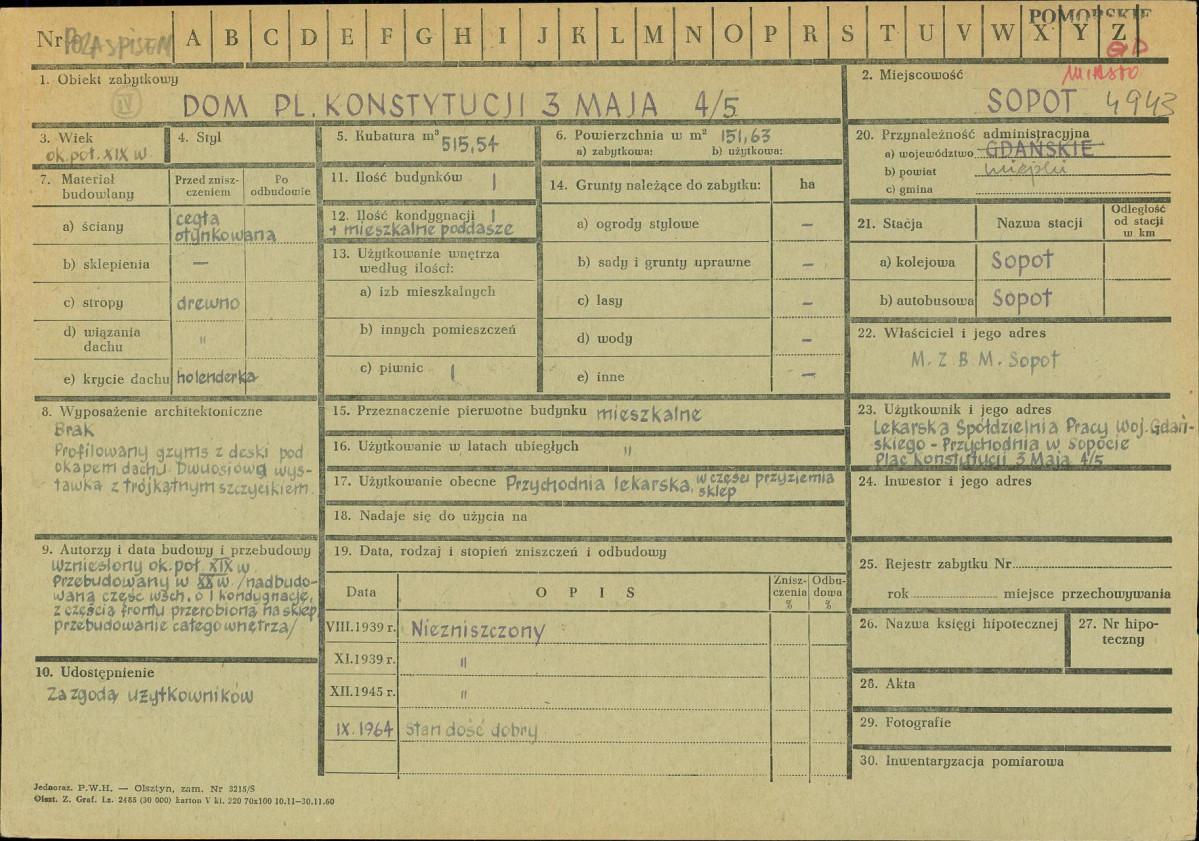 Nr POZA SPISEM A B C D E F G H I J K L M N O P R S T U V W X Y Z
POMORSKIE
MIASTO
1. Obiekt zabytkowy
IV
DOM PL. KONSTYTUCJI 3 MAJA 4/5
2. Miejscowość
SOPOT 4943
3. Wiek
ok. poł. XIX w.
4. Styl
5. Kubatura m³ 515,54
6. Powierzchnia w m² 151,63
a) zabytkowa: b) użytkowa:
7. Materiał budowlany
Przed zniszczeniem
Po odbudowie
a) ściany cegła
otynkowana
b) sklepienia —
c) stropy drewno
d) wiązania dachu "
e) krycie dachu holenderka
8. Wyposażenie architektoniczne
Brak
Profilowany gzyms z deski pod
okapem dachu. Dwuosiowa wys-
tawka z trójkątnym szczycikiem.
9. Autorzy i data budowy i przebudowy
Wzniesiony ok. poł. XIX w.
Przebudowany w XX w. /nadbudo-
waną część wsch. o 1 kondygnację,
z częścią frontu przerobioną na sklep,
przebudowanie całego wnętrza/
10. Udostępnienie
Za zgodą użytkowników
11. Ilość budynków 1
12. Ilość kondygnacji 1
+ mieszkalne poddasze
13. Użytkowanie wnętrza
według ilości:
a) izb mieszkalnych
b) innych pomieszczeń
c) piwnic 1
14. Grunty należące do zabytku: ha
a) ogrody stylowe —
b) sady i grunty uprawne —
c) lasy —
d) wody —
e) inne —
15. Przeznaczenie pierwotne budynku mieszkalne
16. Użytkowanie w latach ubiegłych "
17. Użytkowanie obecne Przychodnia lekarska, w części przyziemia
sklep
18. Nadaje się do użycia na
19. Data, rodzaj i stopień zniszczeń i odbudowy
Data
O P I S
Zniszczenia %
Odbudowa %
VIII.1939 r. Niezniszczony
XI.1939 r. "
XII.1945 r. "
IX.1964 Stan dość dobry
20. Przynależność administracyjna
a) województwo GDAŃSKIE
b) powiat miejski
c) gmina
21. Stacja
Nazwa stacji
Odległość
od stacji
w km
a) kolejowa Sopot
b) autobusowa Sopot
22. Właściciel i jego adres
M.Z.B.M. Sopot
23. Użytkownik i jego adres
Lekarska Spółdzielnia Pracy Woj. Gdań-
skiego - Przychodnia w Sopocie
Plac Konstytucji 3 Maja 4/5
24. Inwestor i jego adres
25. Rejestr zabytku Nr
rok miejsce przechowywania
26. Nazwa księgi hipotecznej
27. Nr hipo-
teczny
28. Akta
29. Fotografie
30. Inwentaryzacja pomiarowa
Jednoraz. P.W.H. — Olsztyn, zam. Nr 3215/S
Olszt. Z. Graf. Lz. 2485 (30 000) karton V kl. 220 70x100 10.11—30.11.60